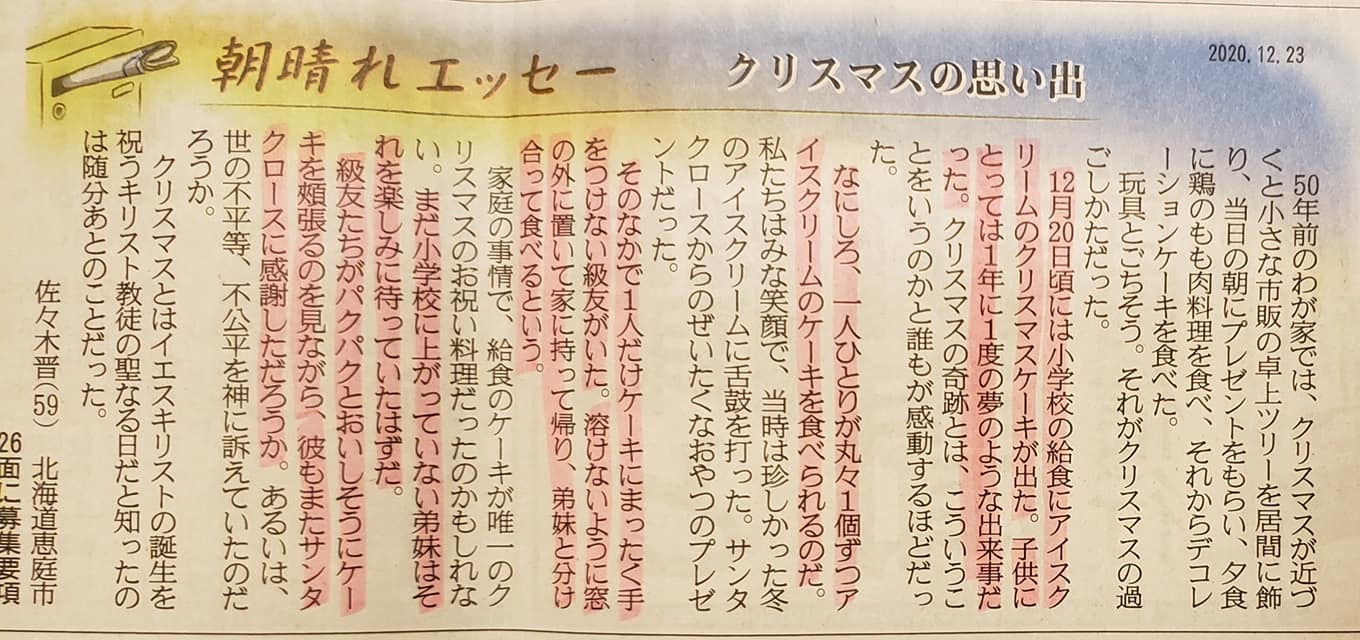 朝晴れエッセー
クリスマスの思い出
2020.12.23
50年前のわが家では、クリスマスが近づ
くと小さな市販の卓上ツリーを居間に飾
り、当日の朝にプレゼントをもらい、夕食
に鶏のもも肉料理を食べ、それからデコレ
ーションケーキを食べた。
玩具とごちそう。それがクリスマスの過
ごしかただった。
12月20日頃には小学校の給食にアイスク
リームのクリスマスケーキが出た。子供に
とっては1年に1度の夢のような出来事だ
った。クリスマスの奇跡とは、こういうこ
とをいうのかと誰もが感動するほどだっ
た。
なにしろ、一人ひとりが丸々1個ずつア
イスクリームのケーキを食べられるのだ。
私たちはみな笑顔で、当時は珍しかった冬
のアイスクリームに舌鼓を打った。サンタ
クロースからのぜいたくなおやつのプレゼ
ントだった。
そのなかで1人だけケーキにまったく手
をつけない級友がいた。溶けないように窓
の外に置いて家に持って帰り、弟妹と分け
合って食べるという。
家庭の事情で、給食のケーキが唯一のク
リスマスのお祝い料理だったのかもしれな
い。まだ小学校に上がっていない弟妹はそ
れを楽しみに待っていたはずだ。
級友たちがパクパクとおいしそうにケー
キを頰張るのを見ながら、彼もまたサンタ
クロースに感謝しただろうか。あるいは、
世の不平等、不公平を神に訴えていたのだ
ろうか。
クリスマスとはイエスキリストの誕生を
祝うキリスト教徒の聖なる日だと知ったの
は随分あとのことだった。
佐々木晋(59) 北海道恵庭市
26面に募集要項